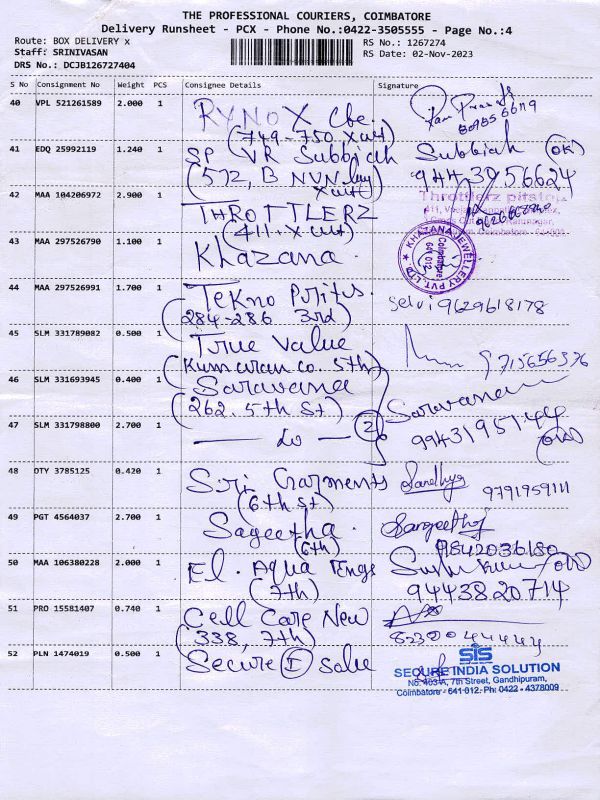 THE PROFESSIONAL COURIERS, COIMBATORE
Delivery Runsheet - PCX - Phone No.:0422-3505555 - Page No.:4
Route: BOX DELIVERY x RS No.: 1267274
Staff: SRINIVASAN RS Date: 02-Nov-2023
DRS No.: DCJB126727404
S No Consignment No Weight PCS Consignee Details Signature
40 VPL 521261589 2.000 1 RYNOX Cbe.
(749-750 X cut)
41 EDQ 25992119 1.240 1 SP VR Subbiah Subbiah (OK)
(572, B NVN 9443956624
X cut)
42 MAA 104206972 2.900 1 THROTTLERZ Throttlerz pitstop
(411. X cut)
43 MAA 297526790 1.100 1 Khazana. KHAZANA JEWELLERY PVT. LTD Coimbatore 641 012
44 MAA 297526991 1.700 1 Tekno Selvi 9629618178
(284-286 3rd)
45 SLM 331789082 0.500 1 True Value 9715656376
(Kumaran co. 5th)
46 SLM 331693945 0.400 1 Saravana Saravanan
(262. 5th St)
47 SLM 331798800 2.700 1 — do — (2) (OK)
48 OTY 3785125 0.420 1 Sri Garments Sandhya 9791959111
(6th st)
49 PGT 4564037 2.700 1 Sageetha. Sangeetha
(6th) 9842036180
50 MAA 106380228 2.000 1 El. Aqua Engs
(7th) 9443820714
51 PRO 15581407 0.740 1 Cell Care New
(338, 7th) 8239044444
52 PLN 1474019 0.500 1 Secure I Solu SIS
SECURE INDIA SOLUTION
No. 403-A, 7th Street, Gandhipuram,
Coimbatore - 641 012. Ph: 0422 - 4378009